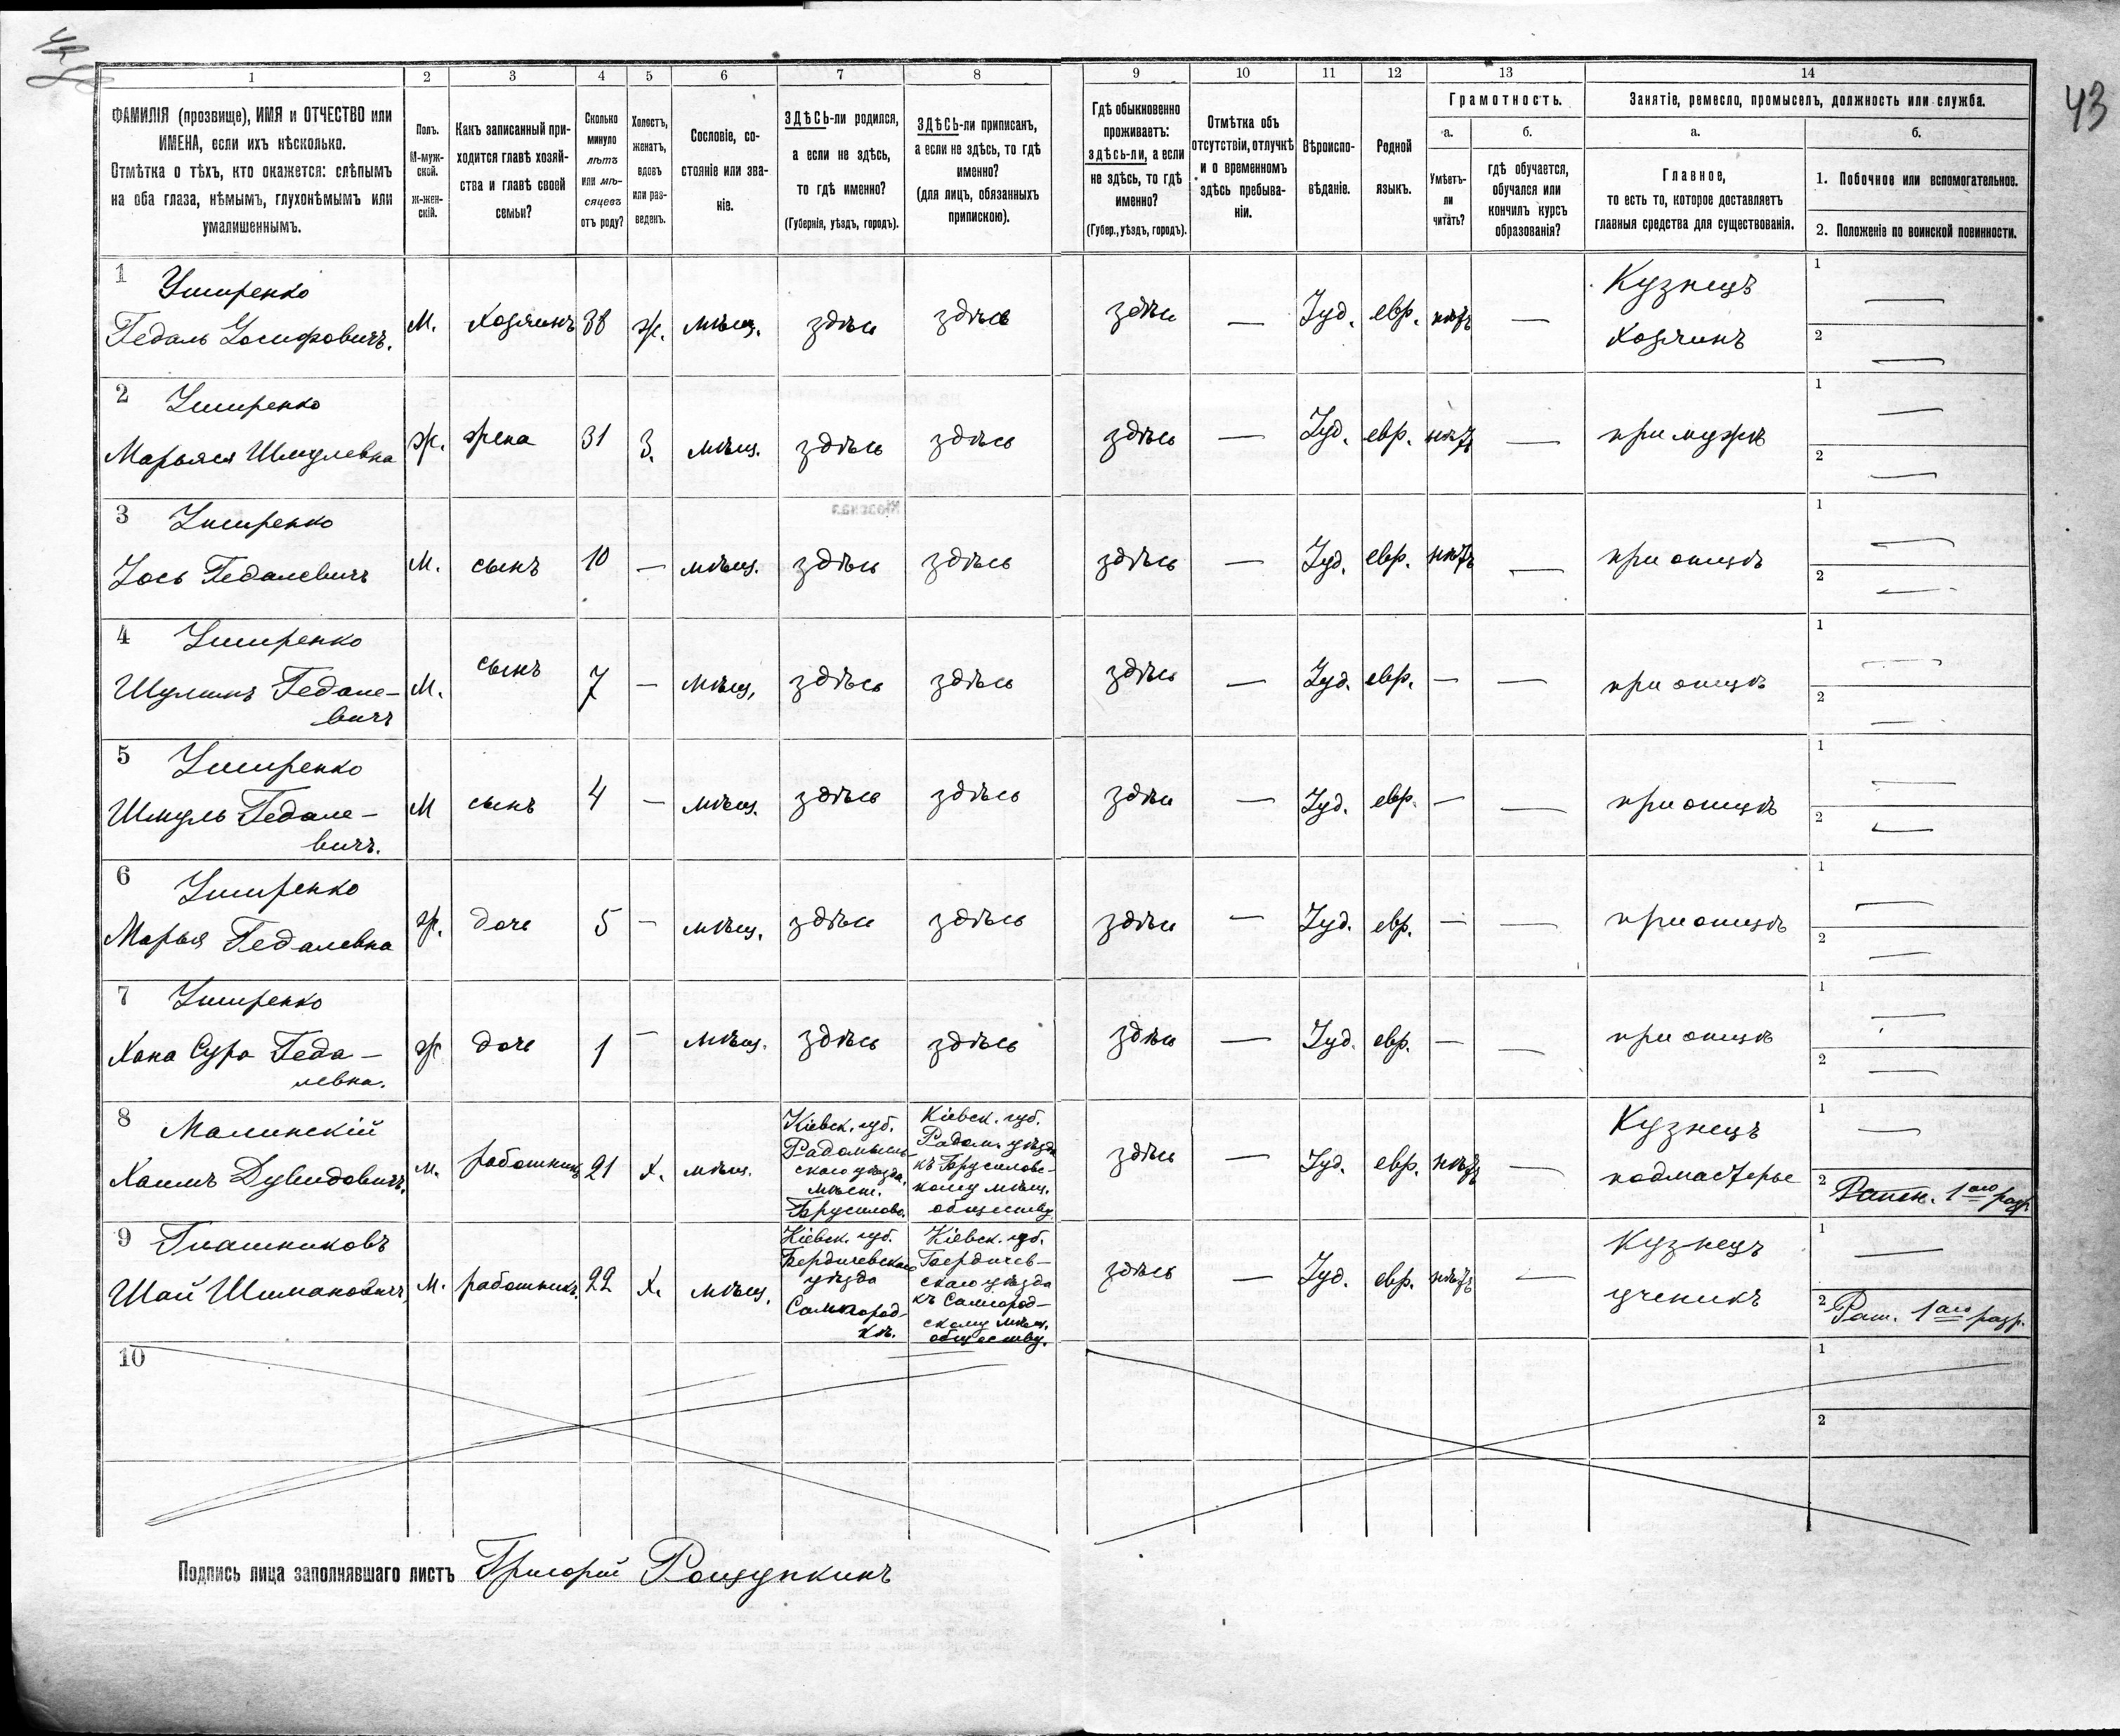 43
1 2 3 4 5 6 7 8 9 10 11 12 13 14
ФАМИЛІЯ (прозвище), ИМЯ и ОТЧЕСТВО или
ИМЕНА, если ихъ нѣсколько.
Отмѣтка о тѣхъ, кто окажется: слѣпымъ
на оба глаза, нѣмымъ, глухонѣмымъ или
умалишеннымъ.
Полъ.
М-муж-
ской.
ж-жен-
скій.
Какъ записанный при-
ходится главѣ хозяй-
ства и главѣ своей
семьи?
Сколько
минуло
лѣтъ
или мѣ-
сяцевъ
отъ роду?
Холостъ,
женатъ,
вдовъ
или раз-
веденъ.
Сословіе, со-
стояніе или зва-
ніе.
ЗДѢСЬ-ли родился,
а если не здѣсь,
то гдѣ именно?
(Губернія, уѣздъ, городъ).
ЗДѢСЬ-ли приписанъ,
а если не здѣсь, то гдѣ
именно?
(для лицъ, обязанныхъ
припискою).
Гдѣ обыкновенно
проживаетъ:
здѣсь-ли, а если
не здѣсь, то гдѣ
именно?
(Губер., уѣздъ, городъ).
Отмѣтка объ
отсутствіи, отлучкѣ
и о временномъ
здѣсь пребыва-
ніи.
Вѣроиспо-
вѣданіе.
Родной
языкъ.
Грамотность.
а.
Умѣетъ-
ли
читать?
б.
гдѣ обучается,
обучался или
кончилъ курсъ
образованія?
Занятіе, ремесло, промыселъ, должность или служба.
а.
Главное,
то есть то, которое доставляетъ
главныя средства для существованія.
б.
1. Побочное или вспомогательное.
2. Положеніе по воинской повинности.
1
Гедаль Іосифовичъ. М. Хозяинъ 38 ж. мѣщ. здѣсь здѣсь здѣсь — Іуд. евр. нѣтъ — Кузнецъ
Хозяинъ
1 —
2 —
2
Марьяся Шмулевна ж. жена 31 З. мѣщ. здѣсь здѣсь здѣсь — Іуд. евр. нѣтъ — при мужѣ
1 —
2 —
3
Іось Гедалевичъ М. сынъ 10 — мѣщ. здѣсь здѣсь здѣсь — Іуд. евр. нѣтъ — при отцѣ
1 —
2 —
4
Гедале-
вичъ М. сынъ 7 — мѣщ. здѣсь здѣсь здѣсь — Іуд. евр. — — при отцѣ
1 —
2 —
5
Шмуль Гедале-
вичъ. М сынъ 4 — мѣщ. здѣсь здѣсь здѣсь — Іуд. евр. — — при отцѣ
1 —
2 —
6
Марья Гедалевна ж. дочь 5 — мѣщ. здѣсь здѣсь здѣсь — Іуд. евр. — — при отцѣ
1 —
2 —
7
Хана Сура Геда-
левна. ж дочь 1 — мѣщ. здѣсь здѣсь здѣсь — Іуд. евр. — — при отцѣ
1 —
2 —
8 Малинскій
Хаимъ Дувидовичъ. м. работникъ 21 х. мѣщ.
Кіевск. губ.
Радомысль-
скаго уѣзда.
мѣст.
Брусилово.
Кіевск. губ.
Радом. уѣзда
къ Брусиловс-
кому мѣщ.
обществу
здѣсь — Іуд. евр. нѣтъ —
Кузнецъ
подмастерье
1 —
2 Ратн. 1аго разр
9
Шай Шимановичъ М. работникъ. 22 Х. мѣщ.
Кіевск. губ.
Бердичевскаго
уѣзда
Самгород-
кѣ.
Кіевск. губ.
Бердичев-
скаго уѣзда
къ Самгород-
скому мѣщ.
обществу.
здѣсь — Іуд. евр. нѣтъ —
Кузнецъ
ученикъ
1 —
2 Рат. 1аго разр.
10
1
2
Подпись лица заполнявшаго листъ Григорій Рощупкинъ